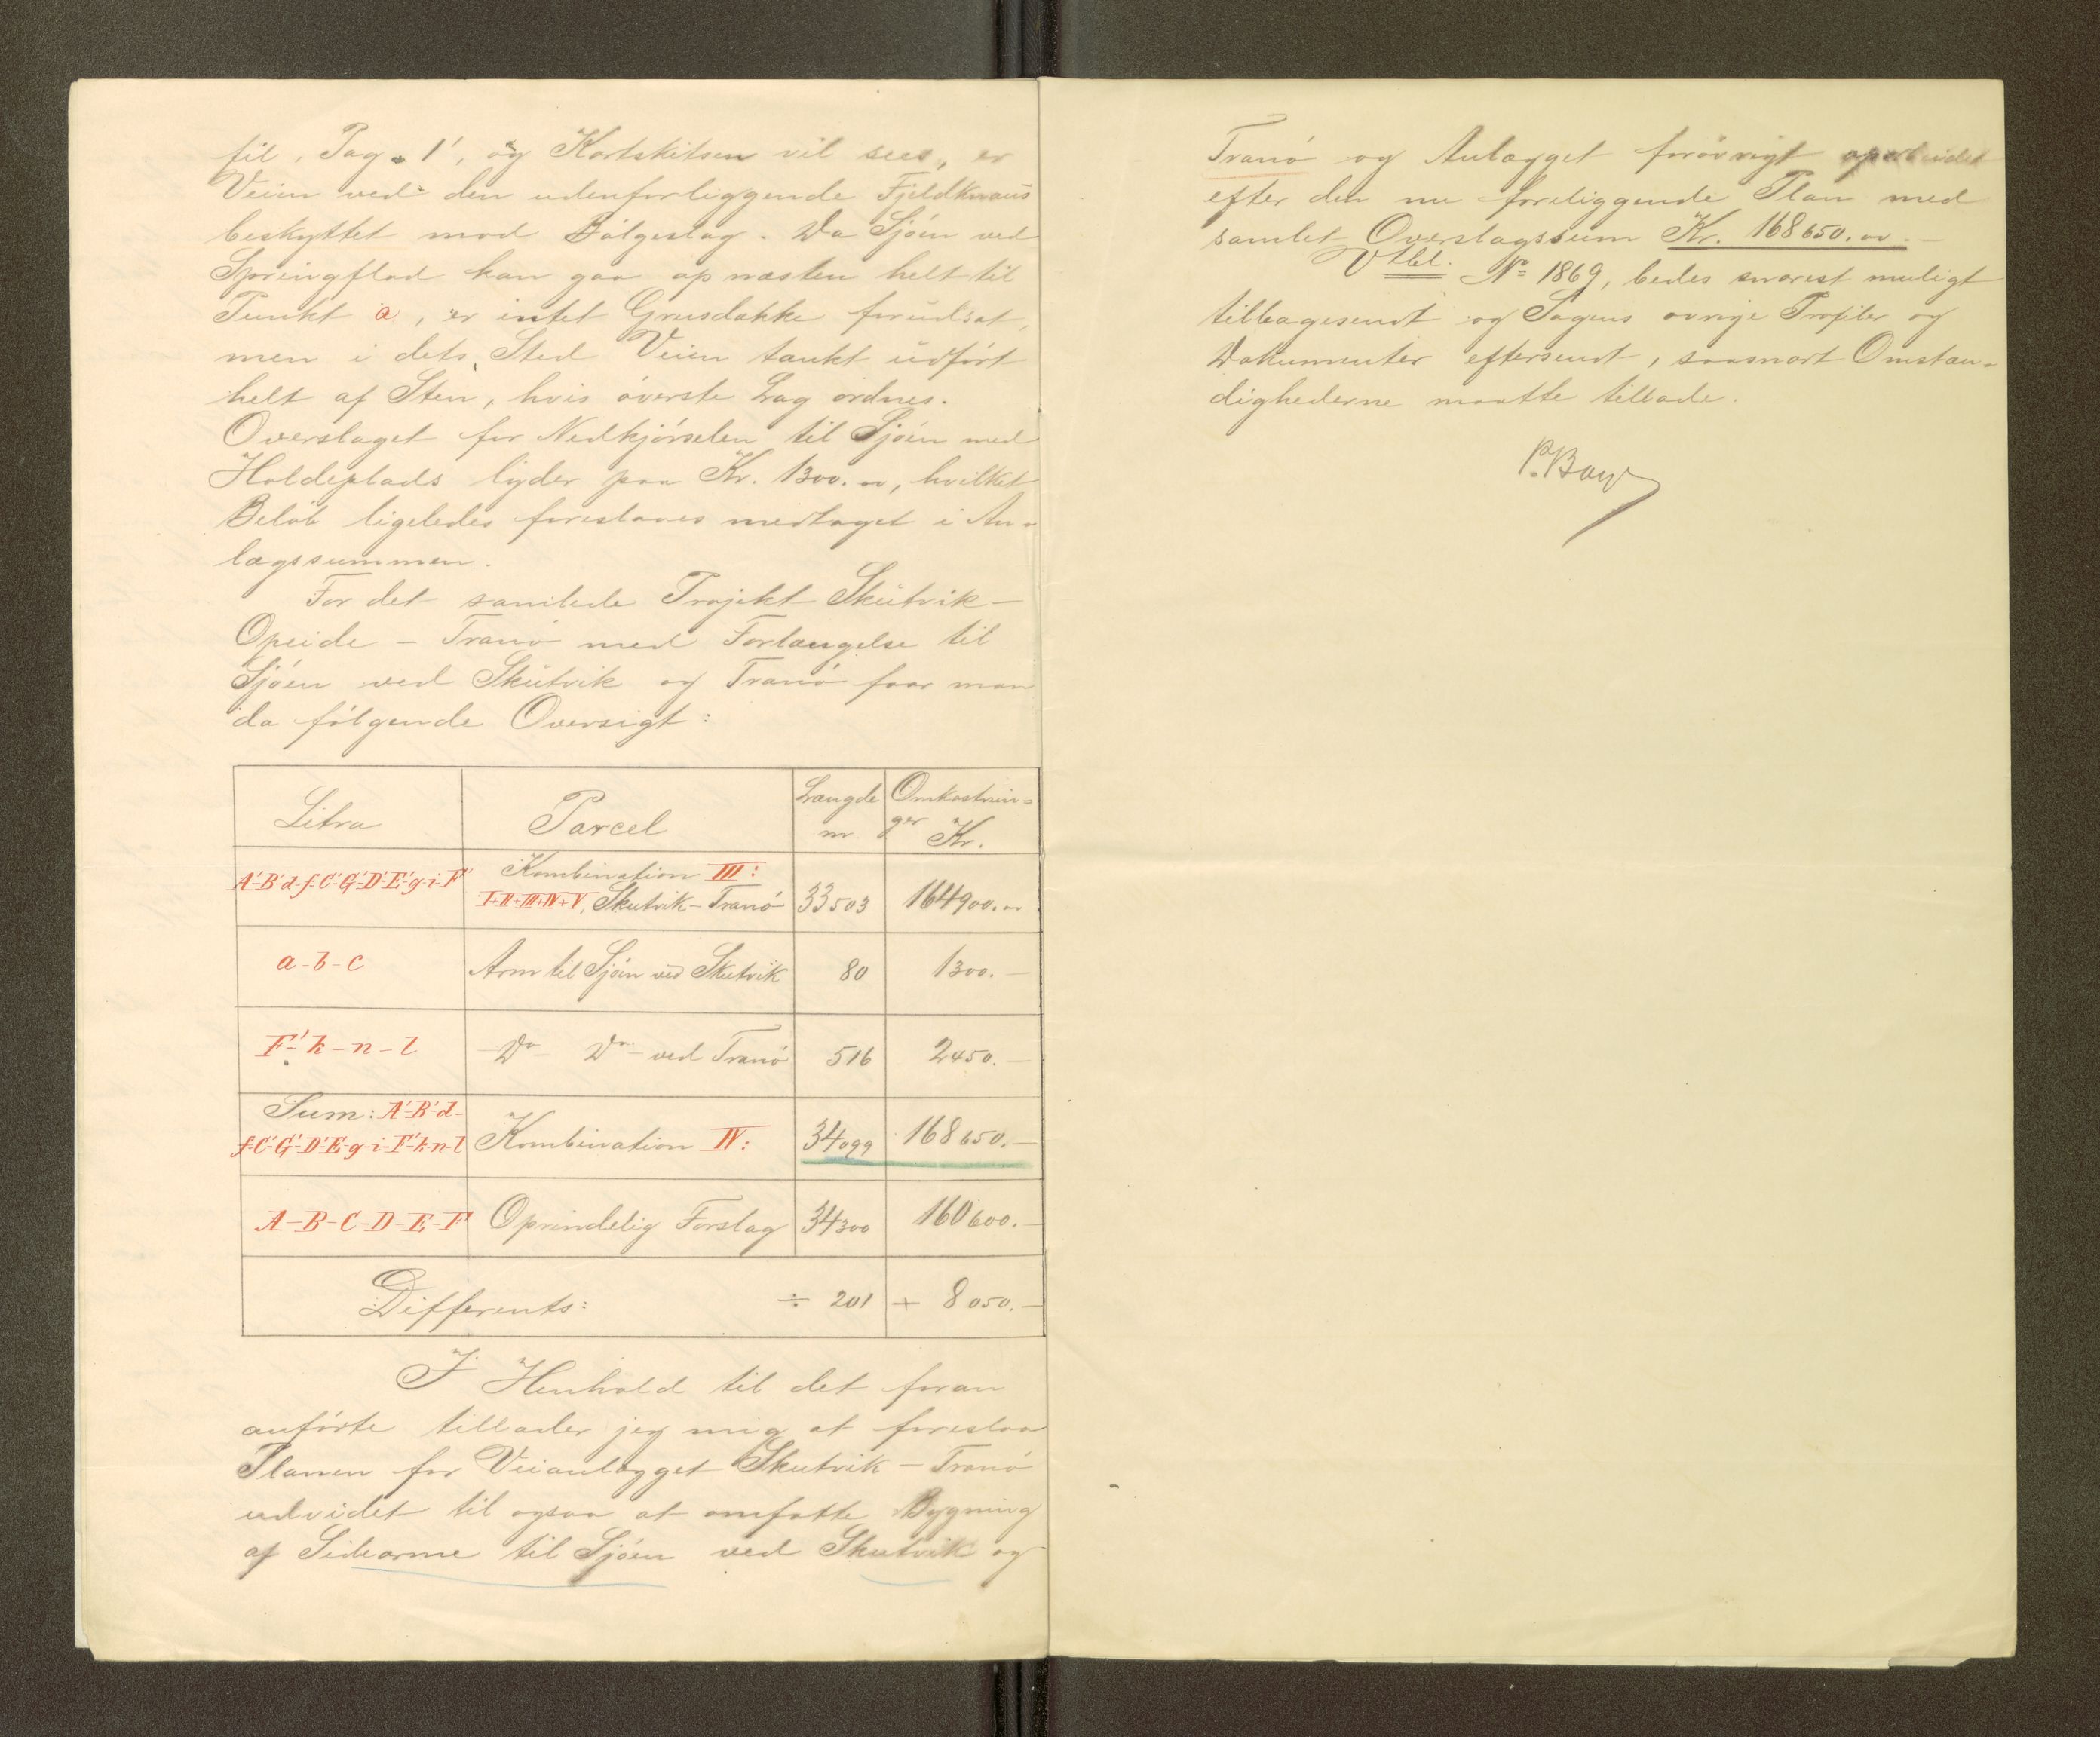 til „Tag. 1", og Kartskitsen vil sees, er
Veien ved den udenforliggende Fjeldknaus
beskyttet mod Bølgeslag. Da Sjøen ved
Springflod kan gaa op næsten helt til
Punkt a, er intet Grusdække forudsat,
men i dets Sted Veien tænkt udført
helt af Sten, hvis øverste Lag ordnes.
Overslaget for Nedkjørselen til Sjøen med
Holdeplads lyder paa Kr. 1300.00, hvilket
Beløb ligeledes foreslaaes medtaget i An-
lægssummen.
For det samlede Projekt Skutvik-
Opeide - Tranø med Forlængelse til
Sjøen ved Skutvik og Tranø faar man
da følgende Oversigt:
Litra Parcel Længde m. Omkostnin-ger Kr.
A'-B'-d-f-C'-G'-D'-E'-g-i-F' Kombination III:
I+II+III+IV+V, Skutvik-Tranø 33503 164900.00
a-b-c Arm til Sjøen ved Skutvik 80 1300.-
F'-k-n-l -Do- Do- ved Tranø 516 2450.-
Sum: A'-B'-d-
f-C'-G'-D'-E-g-i-F'-k-n-l Kombination IV: 34099 168650.-
A-B-C-D-E-F Oprindelig Forslag 34300 160600.-
Differents: ÷ 201 + 8050.-
I Henhold til det foran
anførte tillader jeg mig at foreslaa
Planen for Veianlægget Skutvik - Tranø
udvidet til ogsaa at omfatte Bygning
af Sidearme til Sjøen ved Skutvik og
Tranø og Anlægget forøvrigt oparbeidet
efter den nu foreliggende Plan med
samlet Overslagssum Kr. 168650.00.-
Vbl. No 1869, bedes snarest muligt
tilbagesendt og Sagens øvrige Profiler og
Dokumenter eftersendt, saasnart Omstæn-
dighederne maatte tillade.